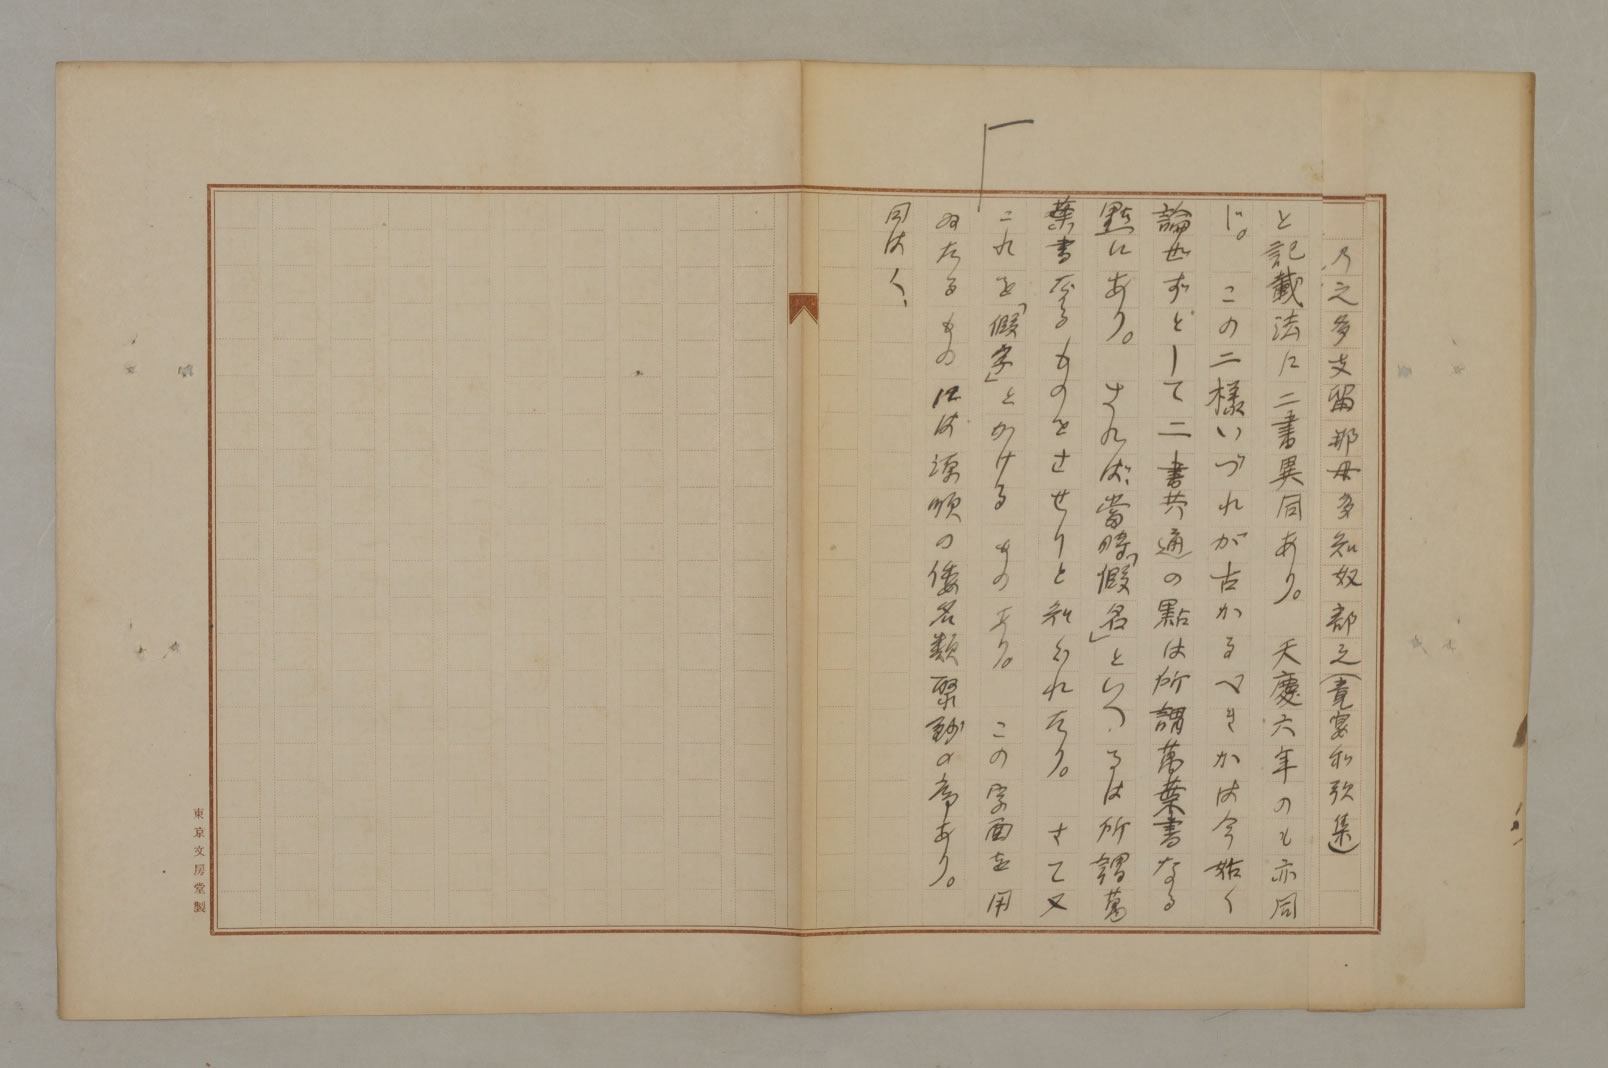 乃之多支留那母多知奴部之(竟宴和歌集)
と記載法に二書異同あり。天慶六年のも亦同
じ。この二様いづれが古かるべきかは今姑く
論ぜずとして二書共通の點は所謂萬葉書なる
點にあり。されば、當時「假名」といへるは所謂萬
葉書なるものをさせりと知られたり。さて又
これを「假字」とかけるものあり。この字面を用
ゐたるものには源順の倭名類聚鈔の序あり。
同はく、
東京文房堂製